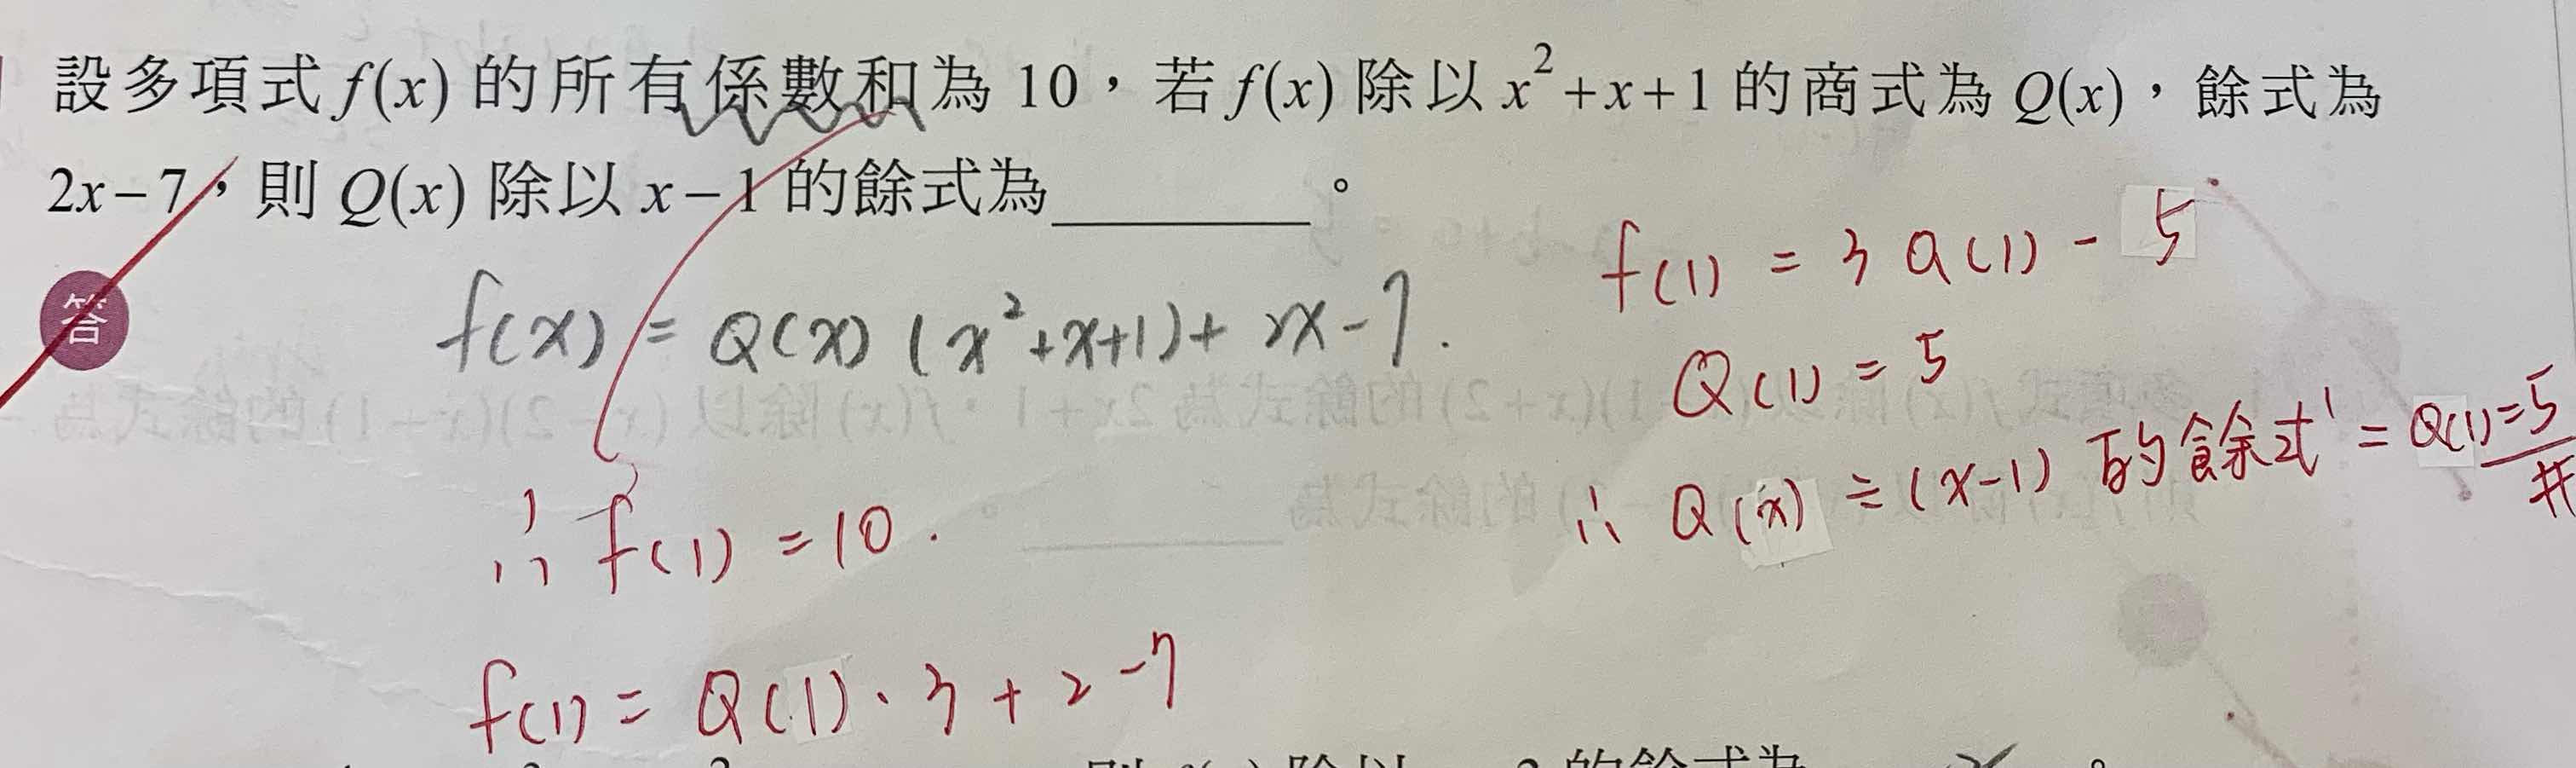 設多項式 f(x) 的所有係數和為 10，若 f(x) 除以 x²+x+1 的商式為 Q(x)，餘式為
2x−7，則 Q(x) 除以 x−1 的餘式為________。
答
f(x) = Q(x) (x²+x+1) + 2x−7.
∴ f(1) = 10.
f(1) = Q(1)·3 + 2 −7
f(1) = 3Q(1) − 5
Q(1) = 5
∴ Q(x) ÷ (x−1) 的餘式 = Q(1)=5 #